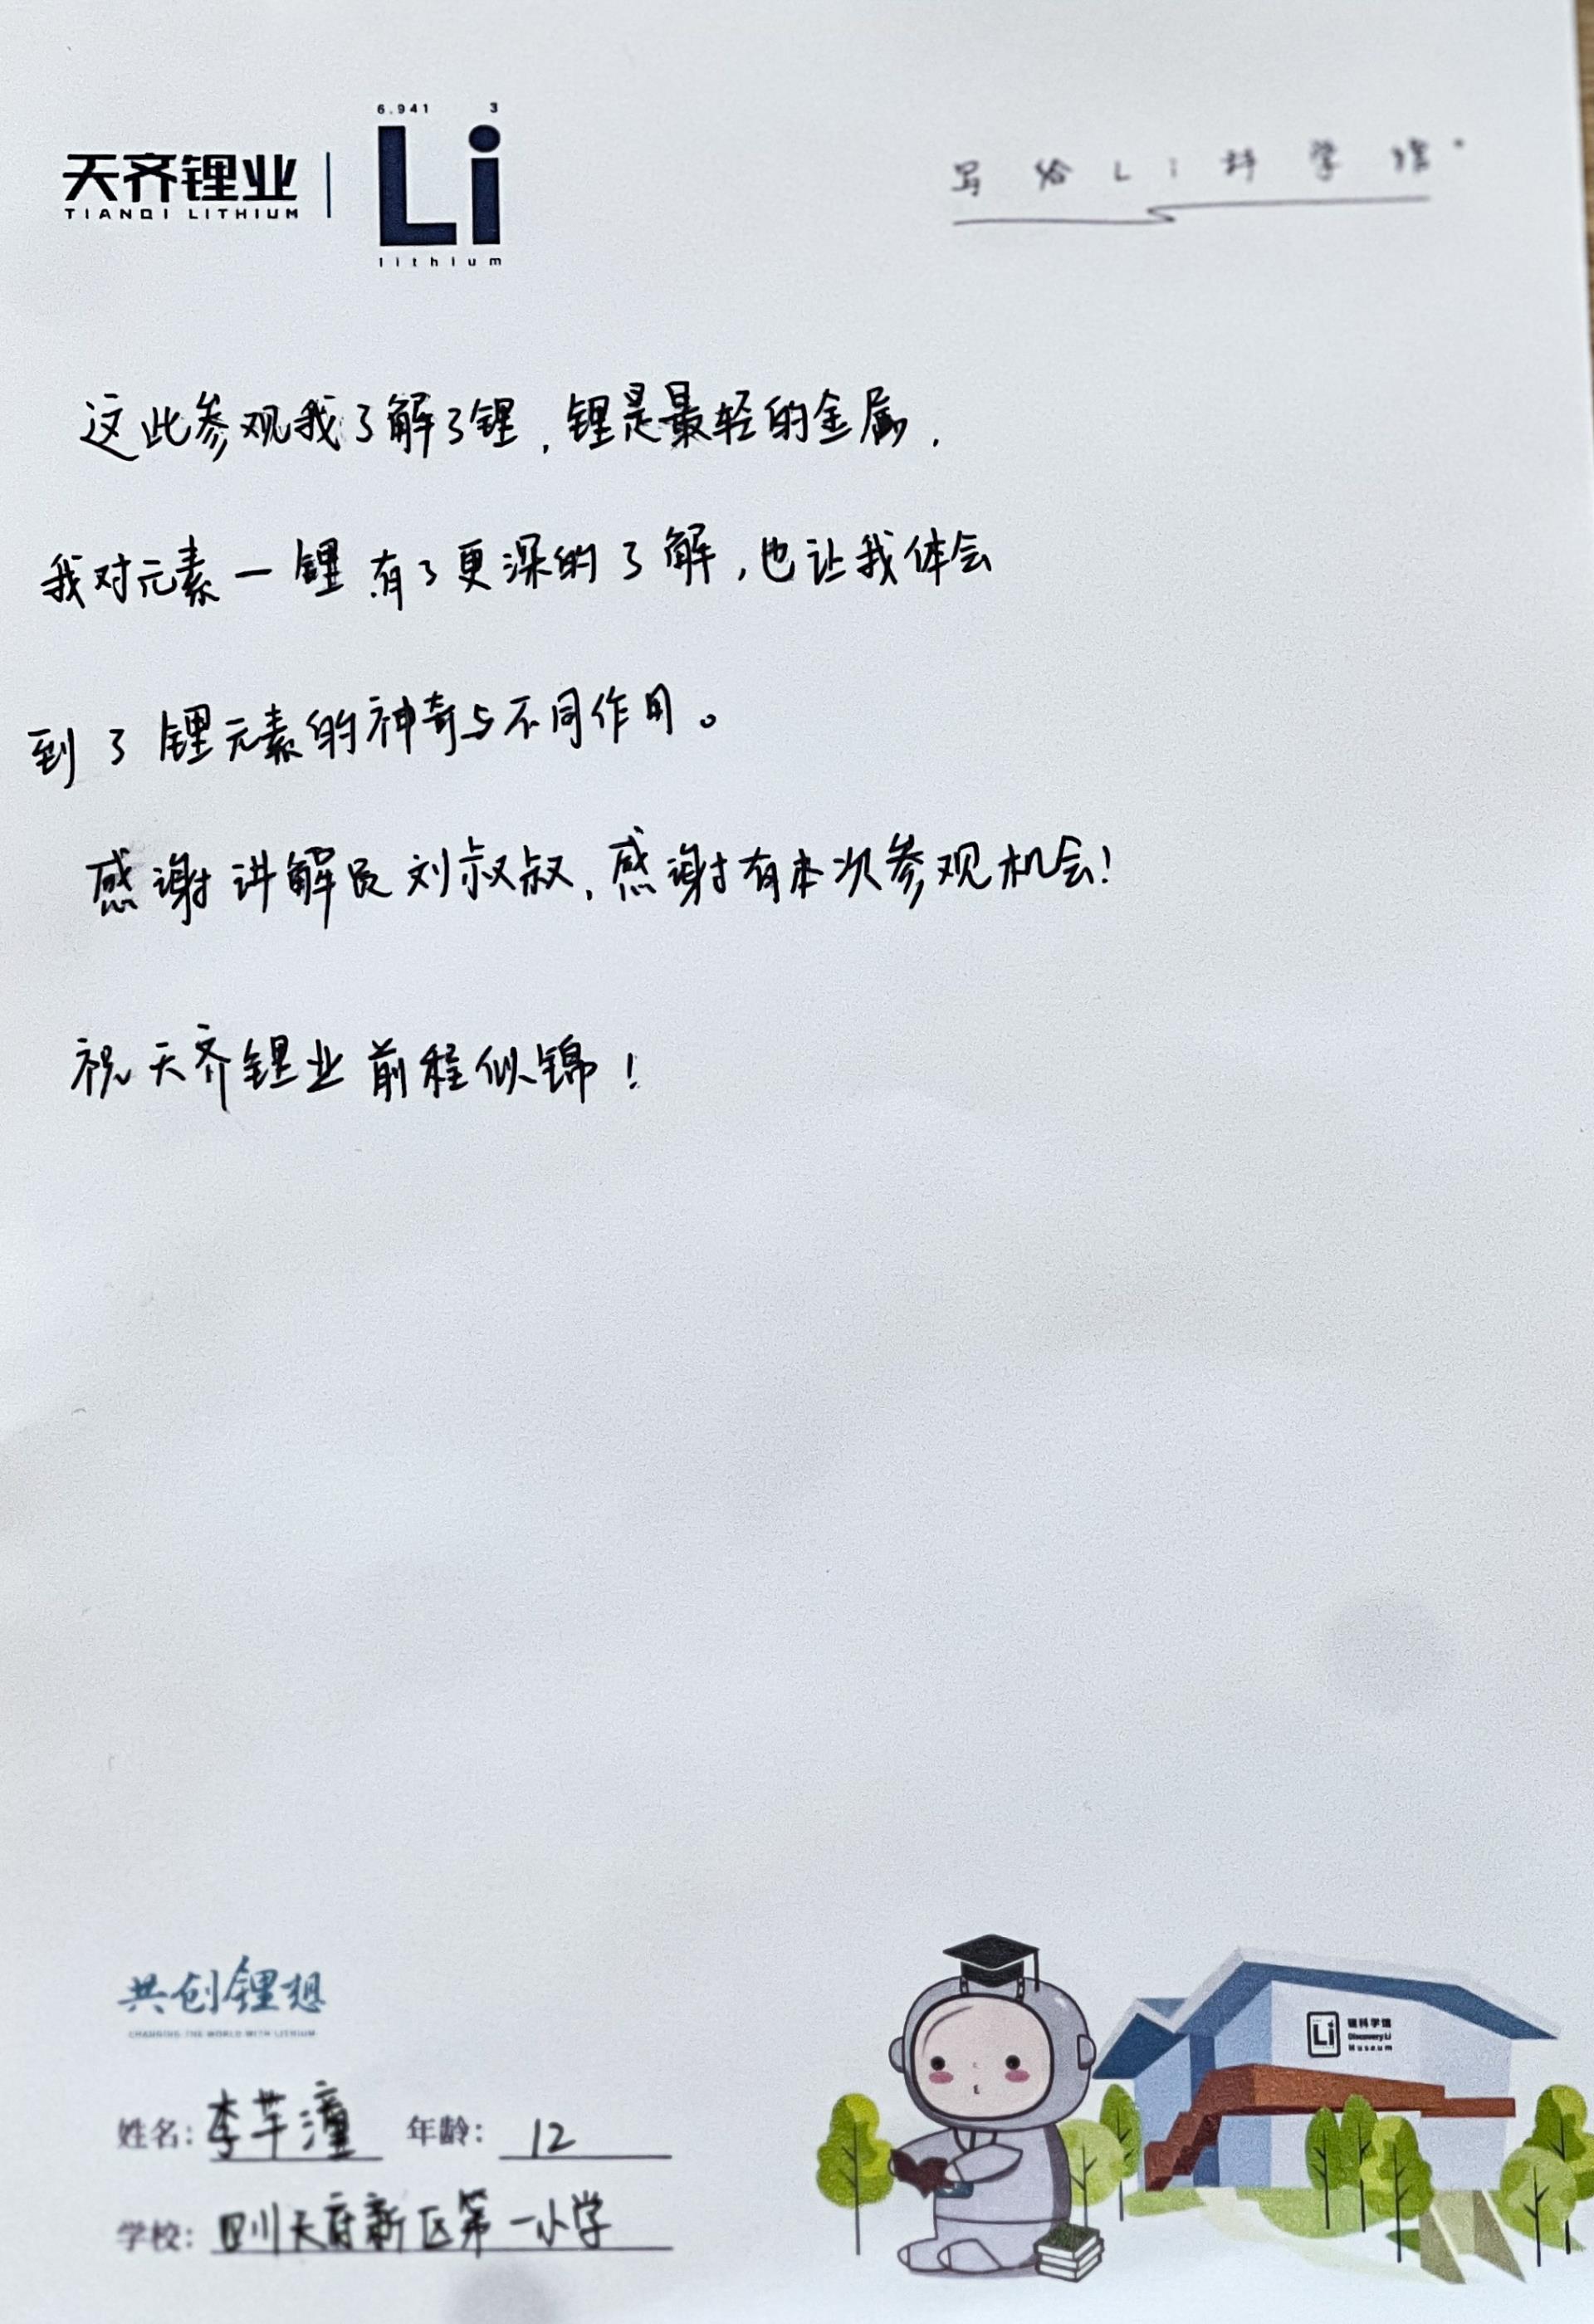 6.941 3
天齐锂业
TIANQI LITHIUM
Li
lithium
写给Li科学馆
这此参观我了解了锂,锂是最轻的金属.
我对元素一锂有了更深的了解,也让我体会
到了锂元素的神奇与不同作用。
感谢讲解员刘叔叔,感谢有本次参观机会!
祝天齐锂业前程似锦!
共创锂想
CHANGING THE WORLD WITH LITHIUM
Li 锂科学馆
Discovery Li
Museum
姓名:李芊潼 年龄:12
学校:四川天府新区第一小学